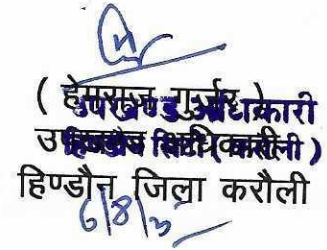 ( हेमराज गुर्जर )
उपखण्ड अधिकारी
उपखण्ड अधिकारी
हिण्डौन सिटी ( करौली )
हिण्डौन जिला करौली
6/8/